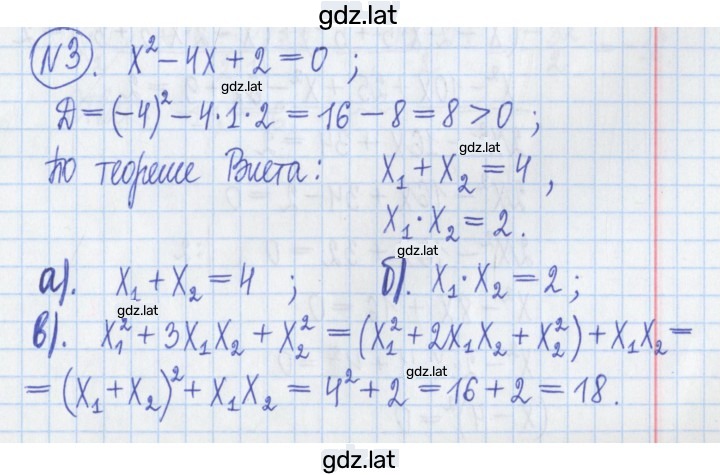 gdz.lat
№3. x² − 4x + 2 = 0 ;
gdz.lat
Д = (−4)² − 4·1·2 = 16 − 8 = 8 > 0 ;
По теореме Виета: x₁ + x₂ = 4 ,
x₁·x₂ = 2.
gdz.lat
а). x₁ + x₂ = 4 ; б). x₁·x₂ = 2 ;
gdz.lat
в). x₁² + 3x₁x₂ + x₂² = (x₁² + 2x₁x₂ + x₂²) + x₁x₂ =
= (x₁ + x₂)² + x₁x₂ = 4² + 2 = 16 + 2 = 18.
gdz.lat